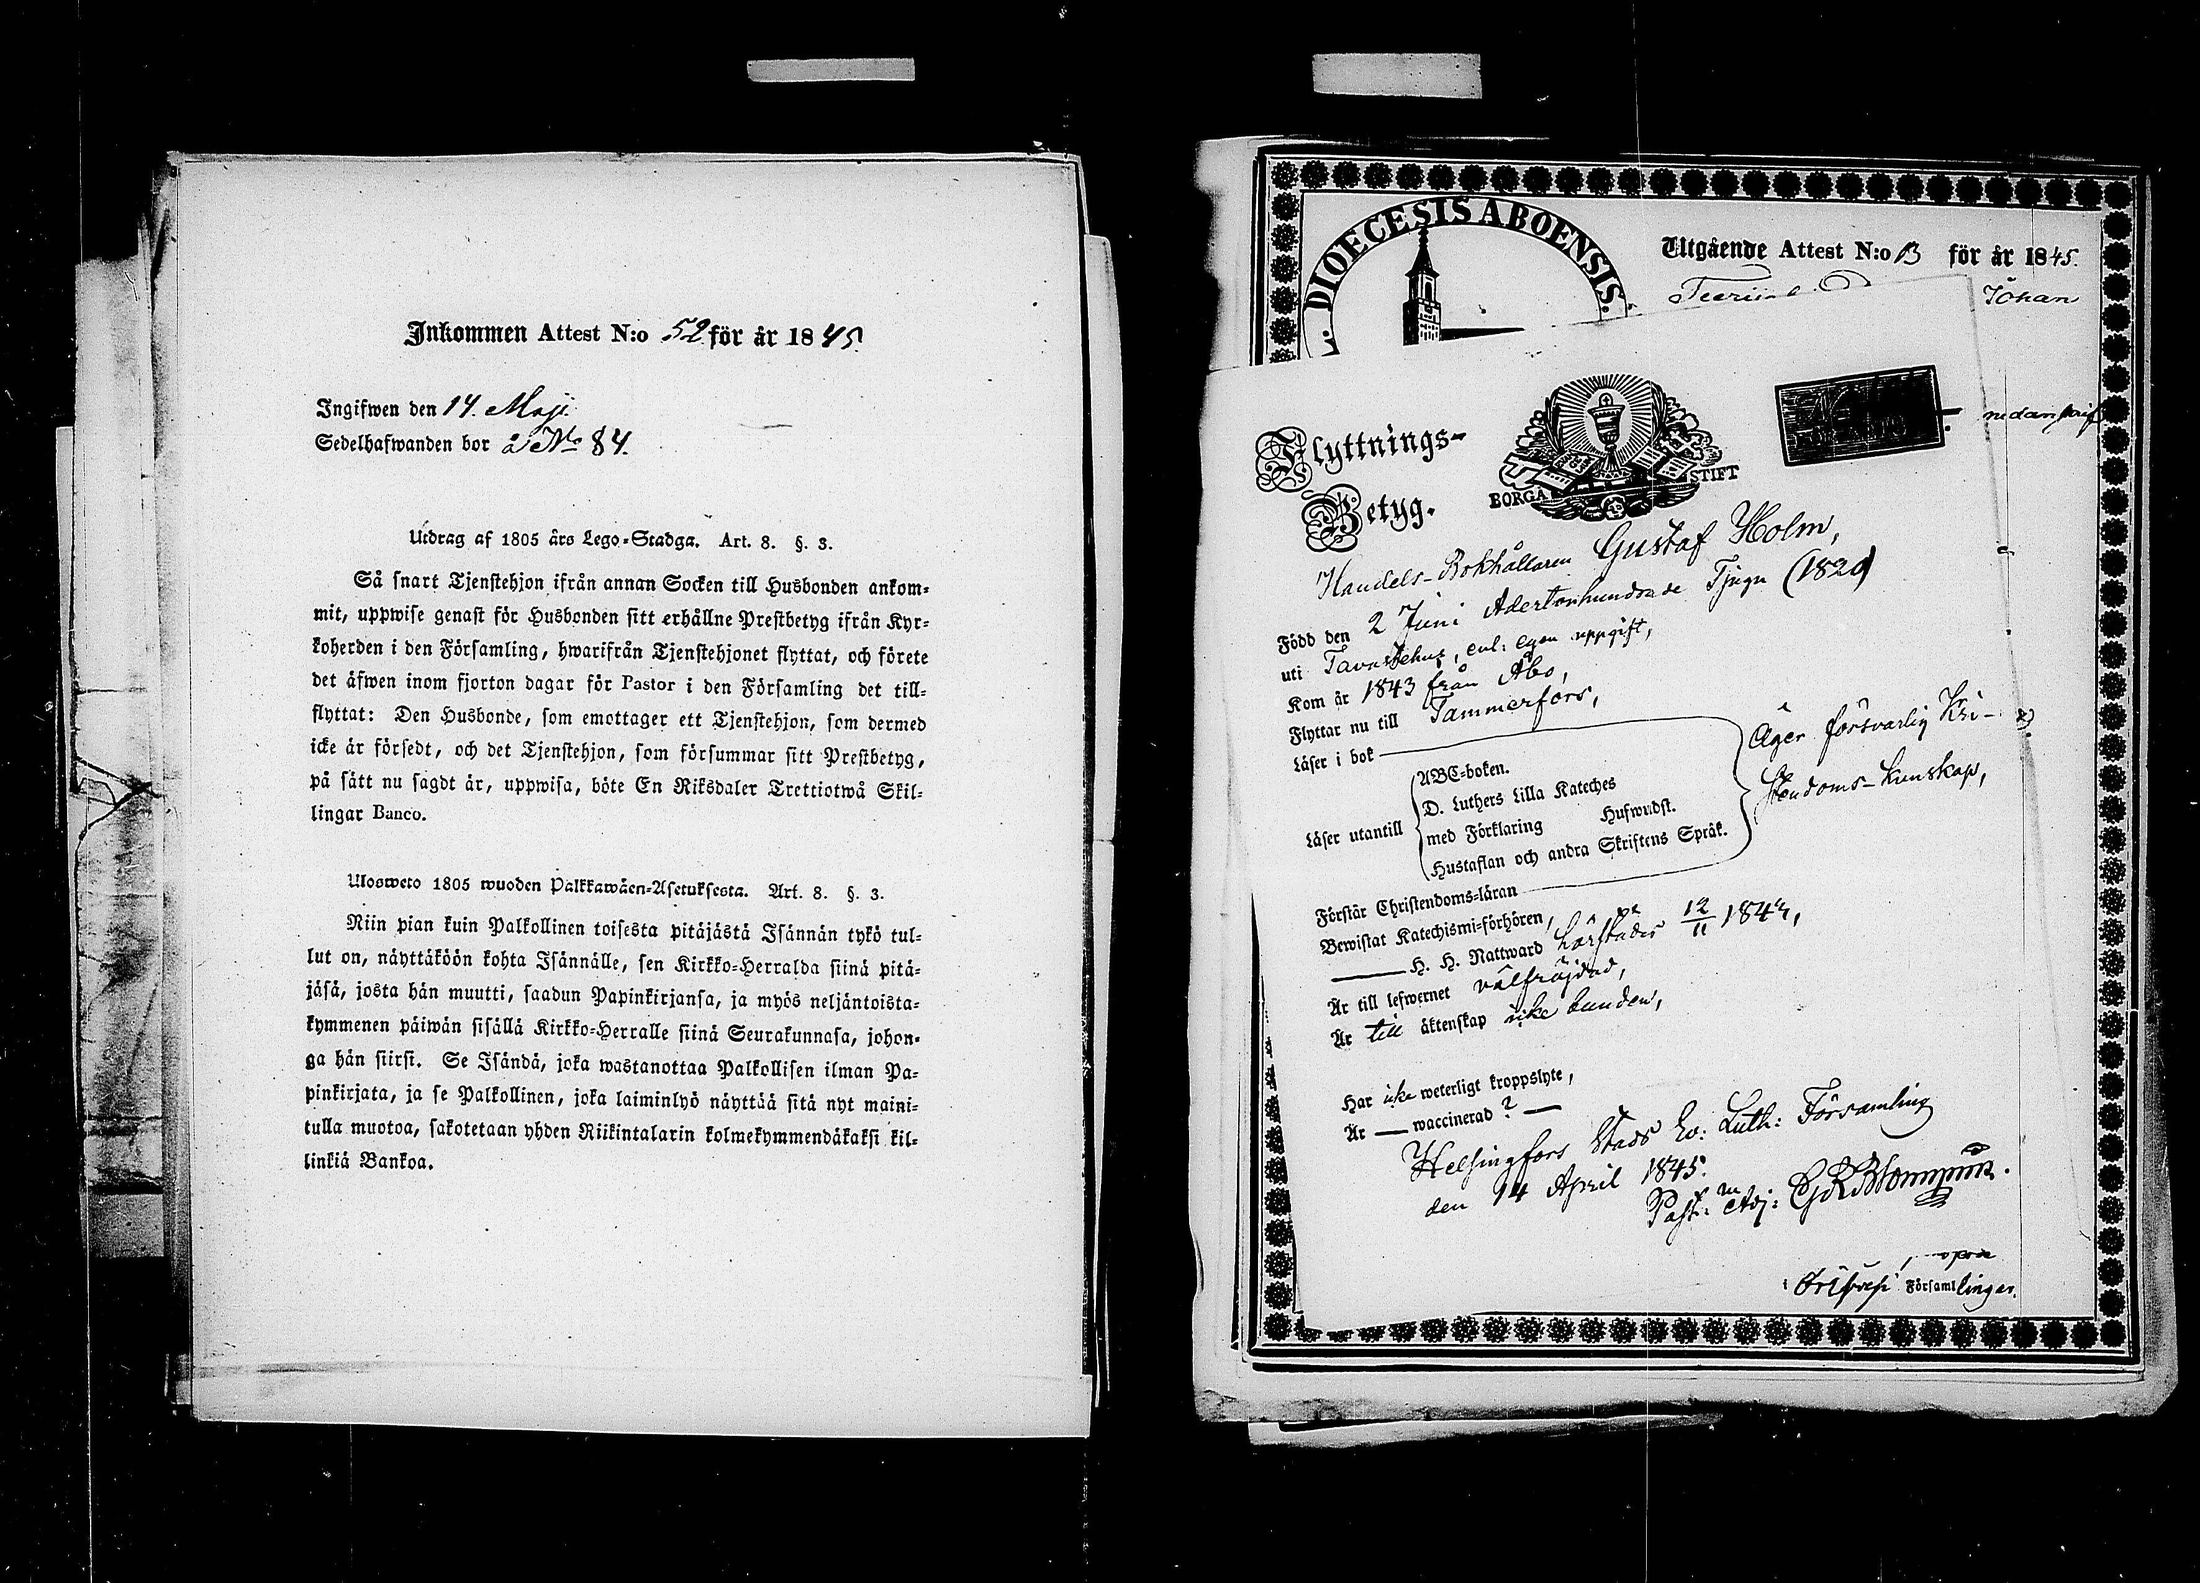 Inkommen Attest N:o 52 för år 1845.
Ingifwen den 14. Maji.
Sedelhafwanden bor å No 84.
Utdrag af 1805 års Lego-Stadga. Art. 8. §. 3.
Så snart Tjenstehjon ifrån annan Socken till Husbonden ankom-
mit, uppwise genast för Husbonden sitt erhållne Prestbetyg ifrån Kyr-
koherden i den Församling, hwarifrån Tjenstehjonet flyttat, och förete
det äfwen inom fjorton dagar för Pastor i den Församling det till-
flyttat: Den Husbonde, som emottager ett Tjenstehjon, som dermed
icke är försedt, och det Tjenstehjon, som försummar sitt Prestbetyg,
på sätt nu sagdt är, uppwisa, böte En Riksdaler Trettiotwå Skil-
lingar Banco.
Ulosweto 1805 wuoden Palkkawäen-Asetuksesta. Art. 8. §. 3.
Niin pian kuin Palkollinen toisesta pitäjästä Isännän tykö tul-
lut on, näyttäköön kohta Isännälle, sen Kirkko-Herralda siinä pitä-
jäsä, josta hän muutti, saadun Papinkirjansa, ja myös neljäntoista-
kymmenen päiwän sisällä Kirkko-Herralle siinä Seurakunnasa, johon-
ga hän siirsi. Se Isändä, joka wastanottaa Palkollisen ilman Pa-
pinkirjata, ja se Palkollinen, joka laiminlyö näyttää sitä nyt maini-
tulla muotoa, sakotetaan yhden Riikintalarin kolmekymmendäkaksi kil-
linkiä Bankoa.
DIOECESIS ABOENSIS.
Utgående Attest N:o 13 för år 1845.
Johan
nedanskrif
Flyttnings-
Betyg.
BORGA STIFT
Handels-Bokhållaren Gustaf Holm,
Född den 2 Juni Adertonhundrade Tjugu (1820)
uti Tavastehus, enl: egen uppgift,
Kom år 1843 från Åbo,
Flyttar nu till Tammerfors,
Läser i bok
Äger försvarlig Kri-
stendoms-kunskap,
Läser utantill
ABC-boken.
D. Luthers Lilla Kateches
med Förklaring Hufwudst.
Hustaflan och andra Skriftens Språk.
Förstår Christendoms-läran
Bewistat Katechismi-förhören,
H. H. Nattward härstädes 12/11 1844,
Är till lefwernet välfrejdad,
Är till äktenskap icke bunden,
Har icke weterligt kroppslyte,
Är — waccinerad? —
Helsingfors Stads Ev: Luth: Församling
den 14 April 1845.
Past: Adj:
Församlingar.